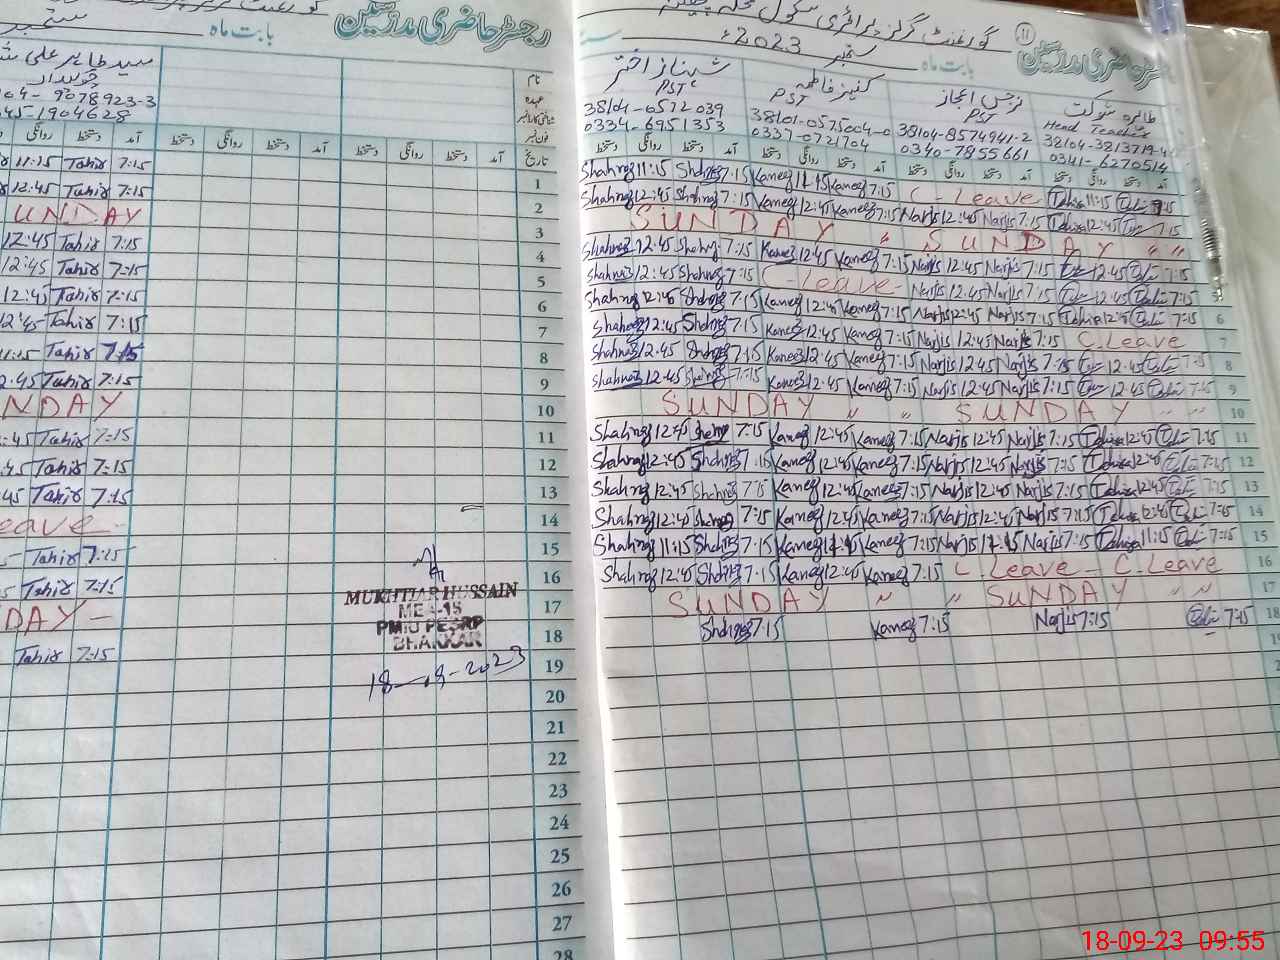 رجسٹر حاضری مدرسین
بابت ماہ
ستمبر
سید طاہر علی
چوکیدار
04- 9078923-3
345-1904628
نام
عہدہ
شناختی کارڈ نمبر
فون نمبر
تاریخ
روانگی دستخط آمد دستخط روانگی دستخط آمد دستخط روانگی دستخط آمد
11:15 Tahir 7:15 1
12:45 Tahir 7:15 2
UNDAY 3
12:45 Tahir 7:15 4
12:45 Tahir 7:15 5
12:45 Tahir 7:15 6
12:45 Tahir 7:15 7
11:15 Tahir 7:15 8
2:45 Tahir 7:15 9
NDAY 10
:45 Tahir 7:15 11
:45 Tahir 7:15 12
45 Tahir 7:15 13
eave - 14
5 Tahir 7:15 15
5 Tahir 7:15 16
DAY - 17
Tahir 7:15 18
19
20
21
22
23
24
25
26
27
28
MUKHTIAR HUSSAIN
MEA-15
PMIU PESRP
BHAKKAR
18-9-2023
گورنمنٹ گرلز پرائمری سکول محلہ
11
رجسٹر حاضری مدرسین
بابت ماہ ستمبر 2023ء
طاہرہ شوکت
Head Teacher
0341-6270514
نرجس اعجاز
PST
38104-8574941-2
0340-7855661
کنیز فاطمہ
PST
38101-0575004-0
0337-0721704
شہناز اختر
PST
38104-0572039
0334-6951353
دستخط روانگی دستخط آمد دستخط روانگی دستخط آمد دستخط روانگی دستخط آمد دستخط روانگی دستخط آمد
Shahnaz 11:15 Shahnaz 7:15 Kaneez 11:15 Kaneez 7:15 C-Leave Tahira 11:15 7:15
Shahnaz 12:45 Shahnaz 7:15 Kaneez 12:45 Kaneez 7:15 Narjis 12:45 Narjis 7:15 Tahira 12:45 7:15
SUNDAY " SUNDAY " "
Shahnaz 12:45 Shahnaz 7:15 Kaneez 12:45 Kaneez 7:15 Narjis 12:45 Narjis 7:15 12:45 7:15
Shahnaz 12:45 Shahnaz 7:15 C-Leave- Narjis 12:45 Narjis 7:15 12:45 7:15 5
Shahnaz 12:45 Shahnaz 7:15 Kaneez 12:45 Kaneez 7:15 Narjis 12:45 Narjis 7:15 Tahira 12:45 7:15 6
Shahnaz 12:45 Shahnaz 7:15 Kaneez 12:45 Kaneez 7:15 Narjis 12:45 Narjis 7:15 C.Leave 7
Shahnaz 12:45 Shahnaz 7:15 Kaneez 12:45 Kaneez 7:15 Narjis 12:45 Narjis 7:15 12:45 7:15 8
Shahnaz 12:45 Shahnaz 7:15 Kaneez 12:45 Kaneez 7:15 Narjis 12:45 Narjis 7:15 12:45 7:15 9
SUNDAY " " SUNDAY " " 10
Shahnaz 12:45 Shahnaz 7:15 Kaneez 12:45 Kaneez 7:15 Narjis 12:45 Narjis 7:15 Tahira 12:45 7:15 11
Shahnaz 12:45 Shahnaz 7:15 Kaneez 12:45 Kaneez 7:15 Narjis 12:45 Narjis 7:15 Tahira 12:45 7:15 12
Shahnaz 12:45 Shahnaz 7:15 Kaneez 12:45 Kaneez 7:15 Narjis 12:45 Narjis 7:15 Tahira 12:45 7:15 13
Shahnaz 12:45 Shahnaz 7:15 Kaneez 12:45 Kaneez 7:15 Narjis 12:45 Narjis 7:15 Tahira 12:45 7:15 14
Shahnaz 11:15 Shahnaz 7:15 Kaneez 11:15 Kaneez 7:15 Narjis 11:15 Narjis 7:15 Tahira 11:15 7:15 15
Shahnaz 12:45 Shahnaz 7:15 Kaneez 12:45 Kaneez 7:15 C.Leave - C.Leave 16
SUNDAY " " SUNDAY " " 17
Shahnaz 7:15 Kaneez 7:15 Narjis 7:15 7:15 18
18-09-23 09:55